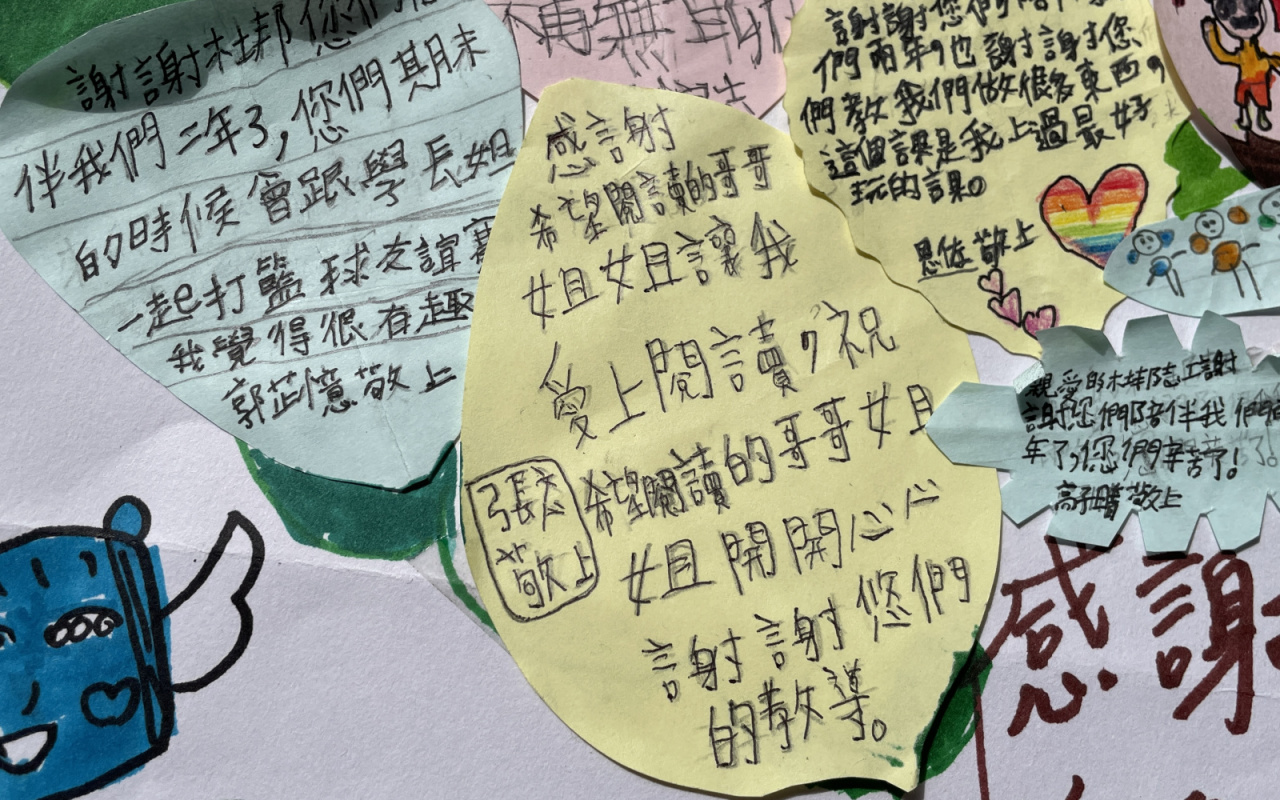 謝謝木棉您們
伴我們二年了,您們期末
的時候會跟學長姐
一起打籃球友誼賽
我覺得很有趣
郭芷憶敬上
無聊
感謝
希望閱讀的哥哥
姐姐讓我
愛上閱讀,祝
希望閱讀的哥哥姐
姐開開心心
謝謝您們
的教導。
張
敬上
謝謝您們陪
們兩年,也謝謝您
們教我們做很多東西,
這個課是我上過最好
玩的課。
恩佐敬上
親愛的木棉志工謝
謝您們陪伴我們
年了,您們辛苦了!
高子晴敬上
感謝